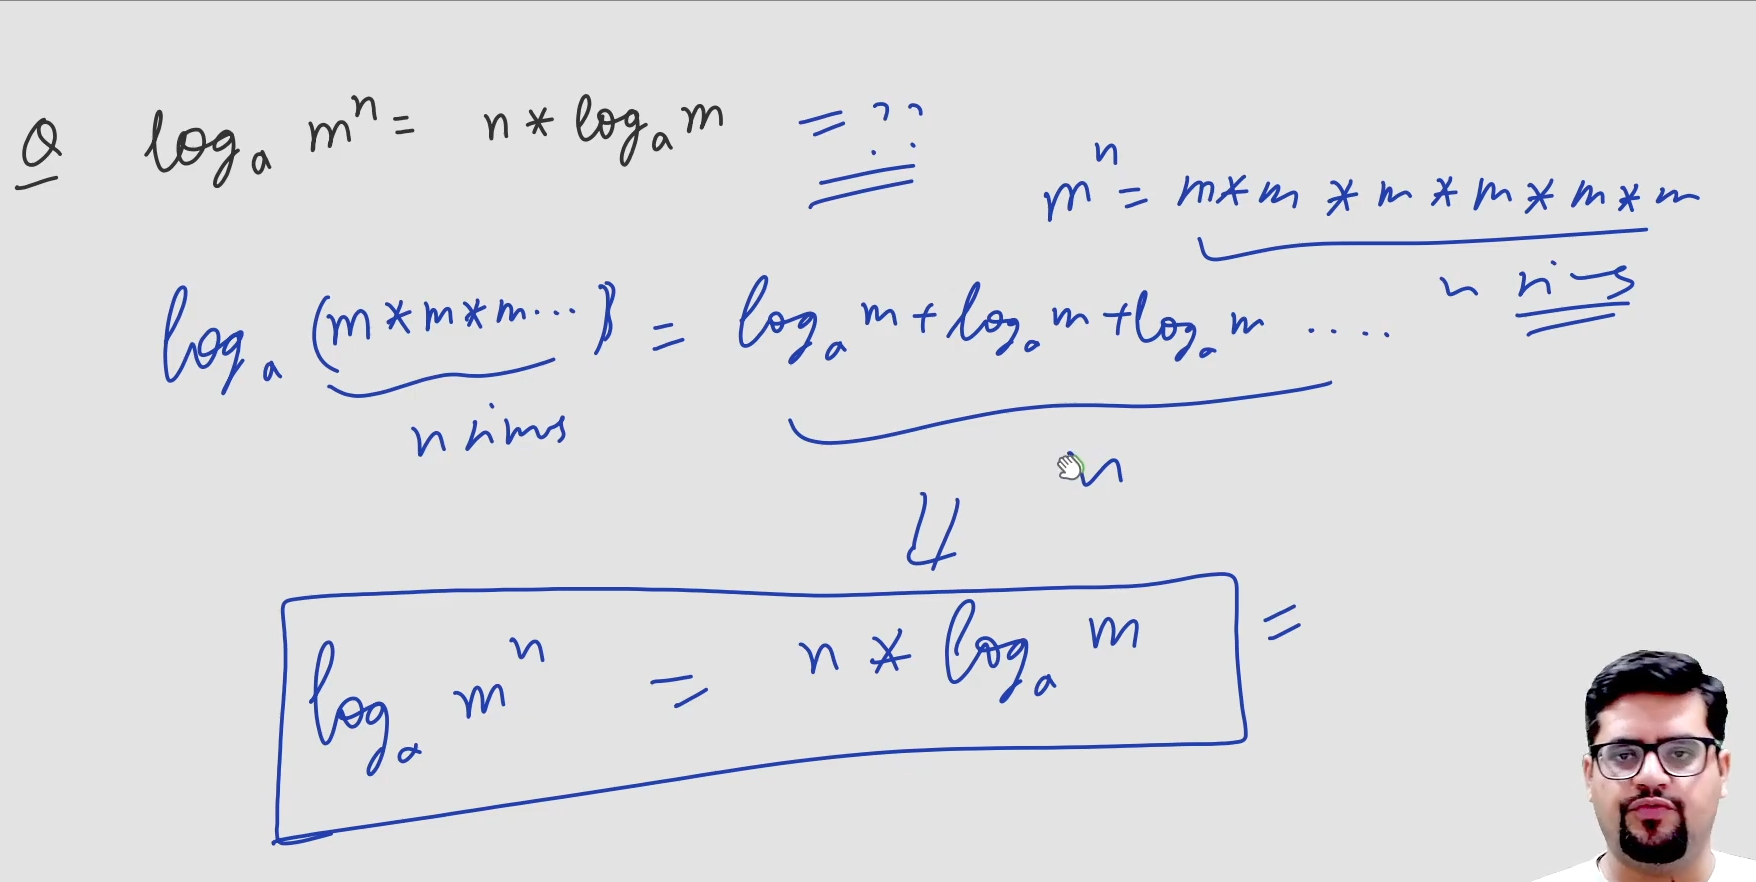 Q logₐ mⁿ = n * logₐ m = ??
mⁿ = m * m * m * m * m * m
n
logₐ (m * m * m ...) = logₐ m + logₐ m + logₐ m ....
n times
n
logₐ mⁿ = n * logₐ m =